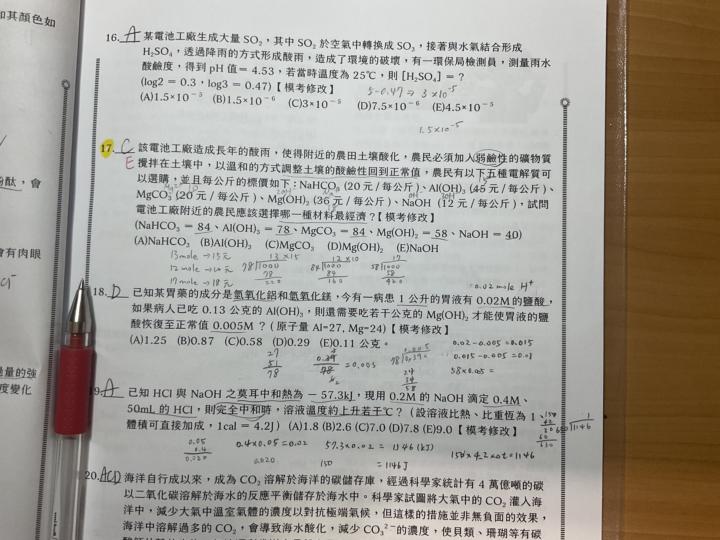 和其顏色如
16. A 某電池工廠生成大量 SO₂，其中 SO₂ 於空氣中轉換成 SO₃，接著與水氣結合形成
H₂SO₄，透過降雨的方式形成酸雨，造成了環境的破壞，有一環保局檢測員，測量雨水
酸鹼度，得到 pH 值= 4.53，若當時溫度為 25℃，則［H₂SO₄］=？
(log2 = 0.3，log3 = 0.47)【模考修改】 5-0.47 ⇒ 3×10⁻⁵
(A)1.5×10⁻⁵ (B)1.5×10⁻⁶ (C)3×10⁻⁵ (D)7.5×10⁻⁶ (E)4.5×10⁻⁵
1.5×10⁻⁵
17. C 該電池工廠造成長年的酸雨，使得附近的農田土壤酸化，農民必須加入弱鹼性的礦物質
E 攪拌在土壤中，以溫和的方式調整土壤的酸鹼性回到正常值，農民有以下五種電解質可
以選購，並且每公斤的標價如下：NaHCO₃ (20 元 / 每公斤)、Al(OH)₃ (45 元 / 每公斤)、
MgCO₃ (20 元 / 每公斤)、Mg(OH)₂ (36 元 / 每公斤)、NaOH (12 元 / 每公斤)，試問
電池工廠附近的農民應該選擇哪一種材料最經濟？【模考修改】
(NaHCO₃ = 84、Al(OH)₃ = 78、MgCO₃ = 84、Mg(OH)₂ = 58、NaOH = 40)
(A)NaHCO₃ (B)Al(OH)₃ (C)MgCO₃ (D)Mg(OH)₂ (E)NaOH
13 mole → 15元
13 × 15
12 × 10
17
17 mole → 18元
0.02 mole H⁺
粉酞，會
會有肉眼
18. D 已知某胃藥的成分是氫氧化鋁和氫氧化鎂，今有一病患 1 公升的胃液有 0.02M 的鹽酸，
如果病人已吃 0.13 公克的 Al(OH)₃，則還需要吃若干公克的 Mg(OH)₂ 才能使胃液的鹽
酸恢復至正常值 0.005M？(原子量 Al=27, Mg=24)【模考修改】
(A)1.25 (B)0.87 (C)0.58 (D)0.29 (E)0.11 公克。 0.02-0.005=0.015
0.015-0.005=0.01
58×0.005=
19. A 已知 HCl 與 NaOH 之莫耳中和熱為 − 57.3kJ，現用 0.2M 的 NaOH 滴定 0.4M、
50mL 的 HCl，則完全中和時，溶液溫度約上升若干℃？(設溶液比熱、比重恆為 1、
體積可直接加成，1cal = 4.2J) (A)1.8 (B)2.6 (C)7.0 (D)7.8 (E)9.0【模考修改】
0.4×0.05=0.02 57.3×0.02=1146 (kJ) 150×4.2×Δt=1146
150 =1146J
過量的強
度變化
20. ACD 海洋自行成以來，成為 CO₂ 溶解於海洋的碳儲存庫，經過科學家統計有 4 萬億噸的碳
以二氧化碳溶解於海水的反應平衡儲存於海水中。科學家試圖將大氣中的 CO₂ 灌入海
洋中，減少大氣中溫室氣體的濃度以對抗極端氣候，但這樣的措施並非無負面的效果，
海洋中溶解過多的 CO₂，會導致海水酸化，減少 CO₃²⁻ 的濃度，使貝類、珊瑚等有碳